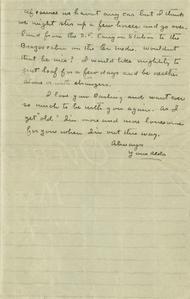 Of course we haven't any car but I think
we might stir up a few horses and go over
land from the D.F. Canyon Station to the
cabin on the Rio Medio. Wouldn't
that be nice? I would like mightily to
just loaf for a few days and be neither
alone or with strangers.
I love you Darling and want ever
so much to be with you again. As I
get "old" I'm more and more lonesome
for you when I'm out this way.
Always
Your Aldo